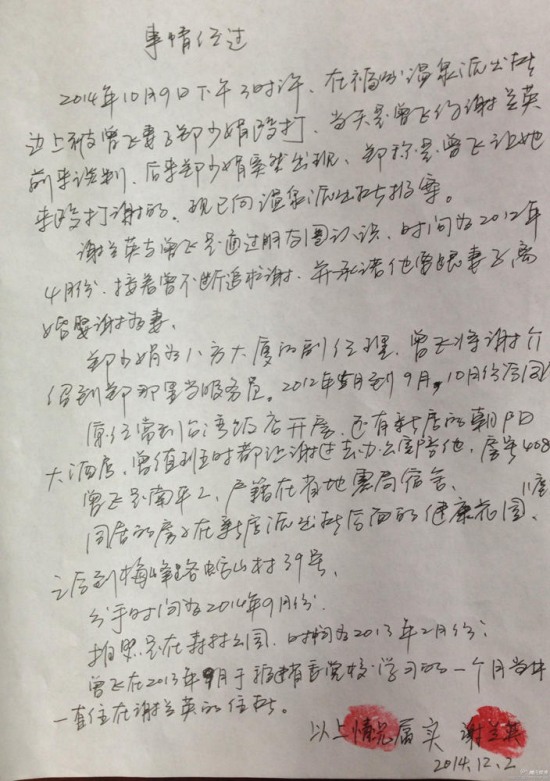 事情经过
2014年10月9日下午3时许，在福州温泉派出所
边上被曾飞妻子郑少娟殴打，当天是曾飞约谢兰英
前来谈判，后来郑少娟突然出现，郑称是曾飞让她
来殴打谢的。现已向温泉派出所报案。
谢兰英与曾飞是通过朋友圈认识，时间为2012年
4月份，接着曾不断追求谢，并承诺他会跟妻子离
婚娶谢为妻。
郑少娟为八方大厦的副经理，曾飞将谢介
绍到郑那里当服务员。2012年5月到9月，10月份合同
经常到台湾饭店开房，还有新店的朝阳
大酒店，曾值班时都让谢过去办公室陪他，房号408
曾飞是南平人，户籍在省地震局宿舍。
同居的房子在新店派出所后面的健康花园，11座
之后到梅峰路 山村39号，
分手时间为2014年9月份。
拍照是在森林公园，时间为2013年2月份。
曾飞在2013年9月于福建省委党校学习的一个月当中
一直住在谢兰英的住所。
以上情况属实 谢兰英
2014.12.2